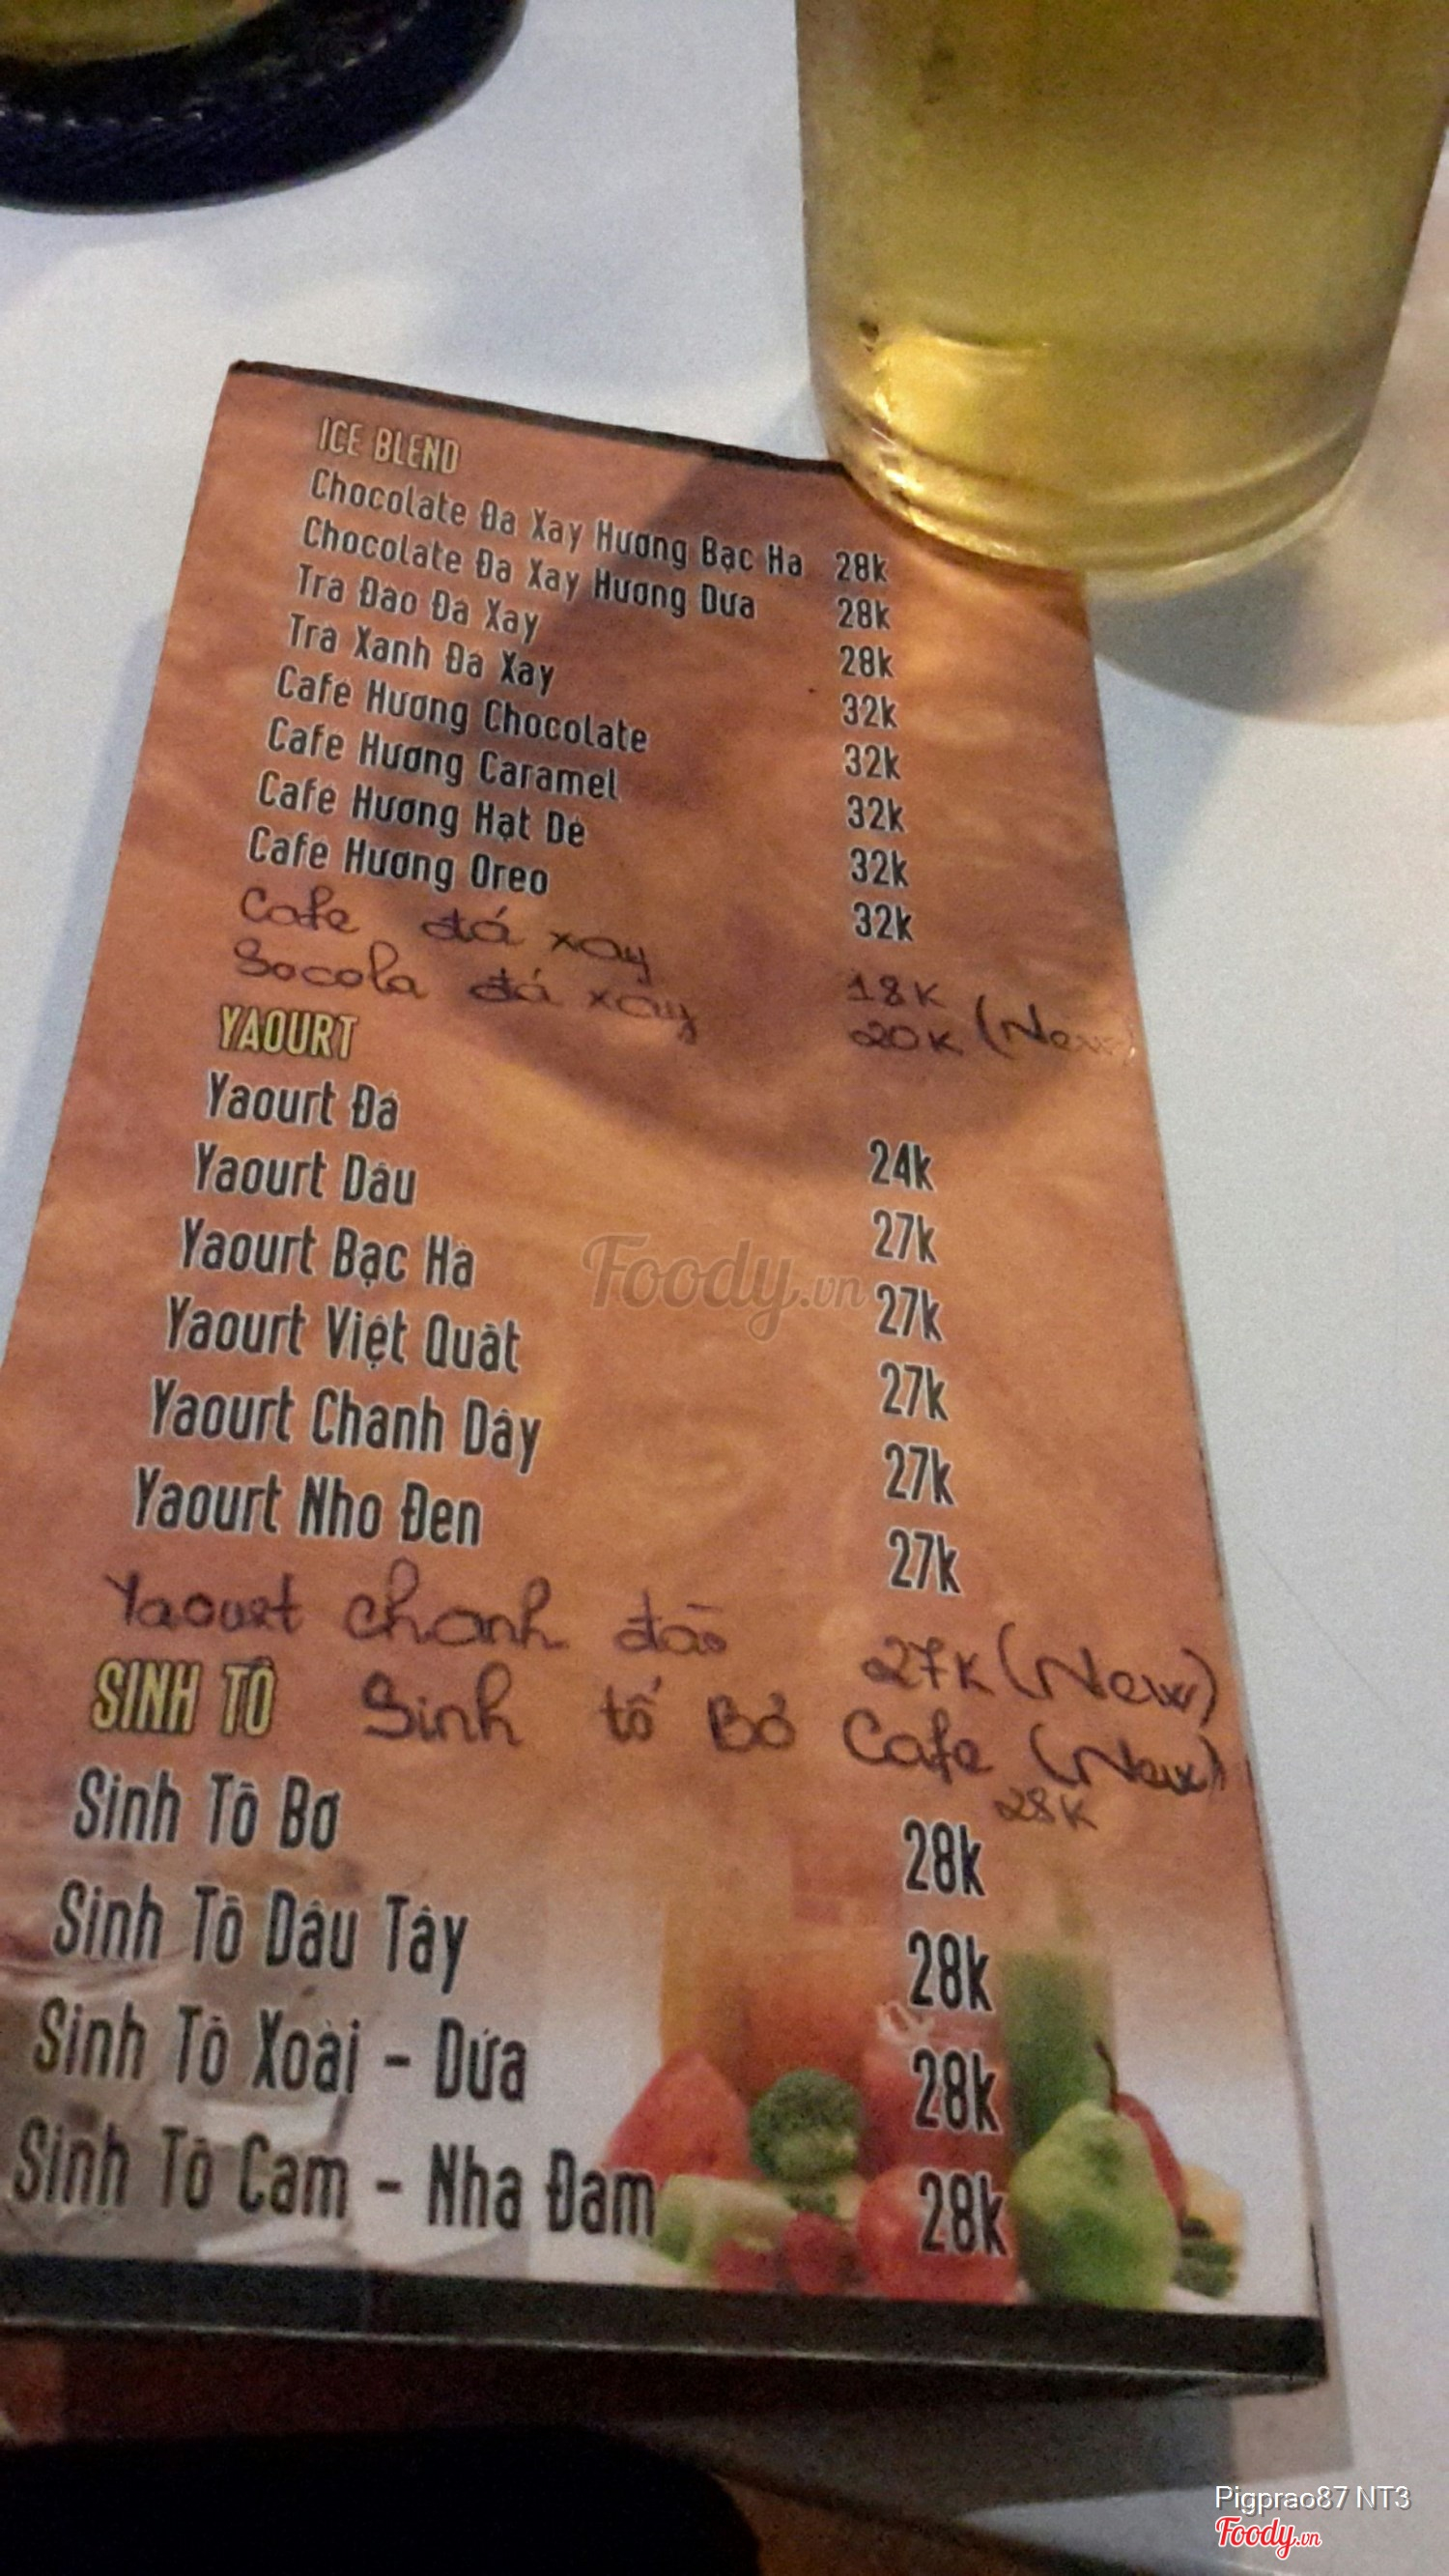 ICE BLEND
Chocolate Đá Xay Hương Bạc Hà 28k
Chocolate Đá Xay Hương Dừa 28k
Trà Đào Đá Xay 28k
Trà Xanh Đá Xay 32k
Cafe Hương Chocolate 32k
Cafe Hương Caramel 32k
Cafe Hương Hạt Dẻ 32k
Cafe Hương Oreo 32k
Cafe đá xay 18K
Socola đá xay 20K (New)
YAOURT
Yaourt Đá 24k
Yaourt Dâu 27k
Yaourt Bạc Hà 27k
Yaourt Việt Quất 27k
Yaourt Chanh Dây 27k
Yaourt Nho Đen 27k
Yaourt chanh đào 27K (New)
SINH TỐ Sinh tố Bơ Cafe (New)
28K
Sinh Tố Bơ 28k
Sinh Tố Dâu Tây 28k
Sinh Tố Xoài - Dứa 28k
Sinh Tố Cam - Nha Đam 28k
Foody.vn
Pigprao87 NT3
Foody.vn